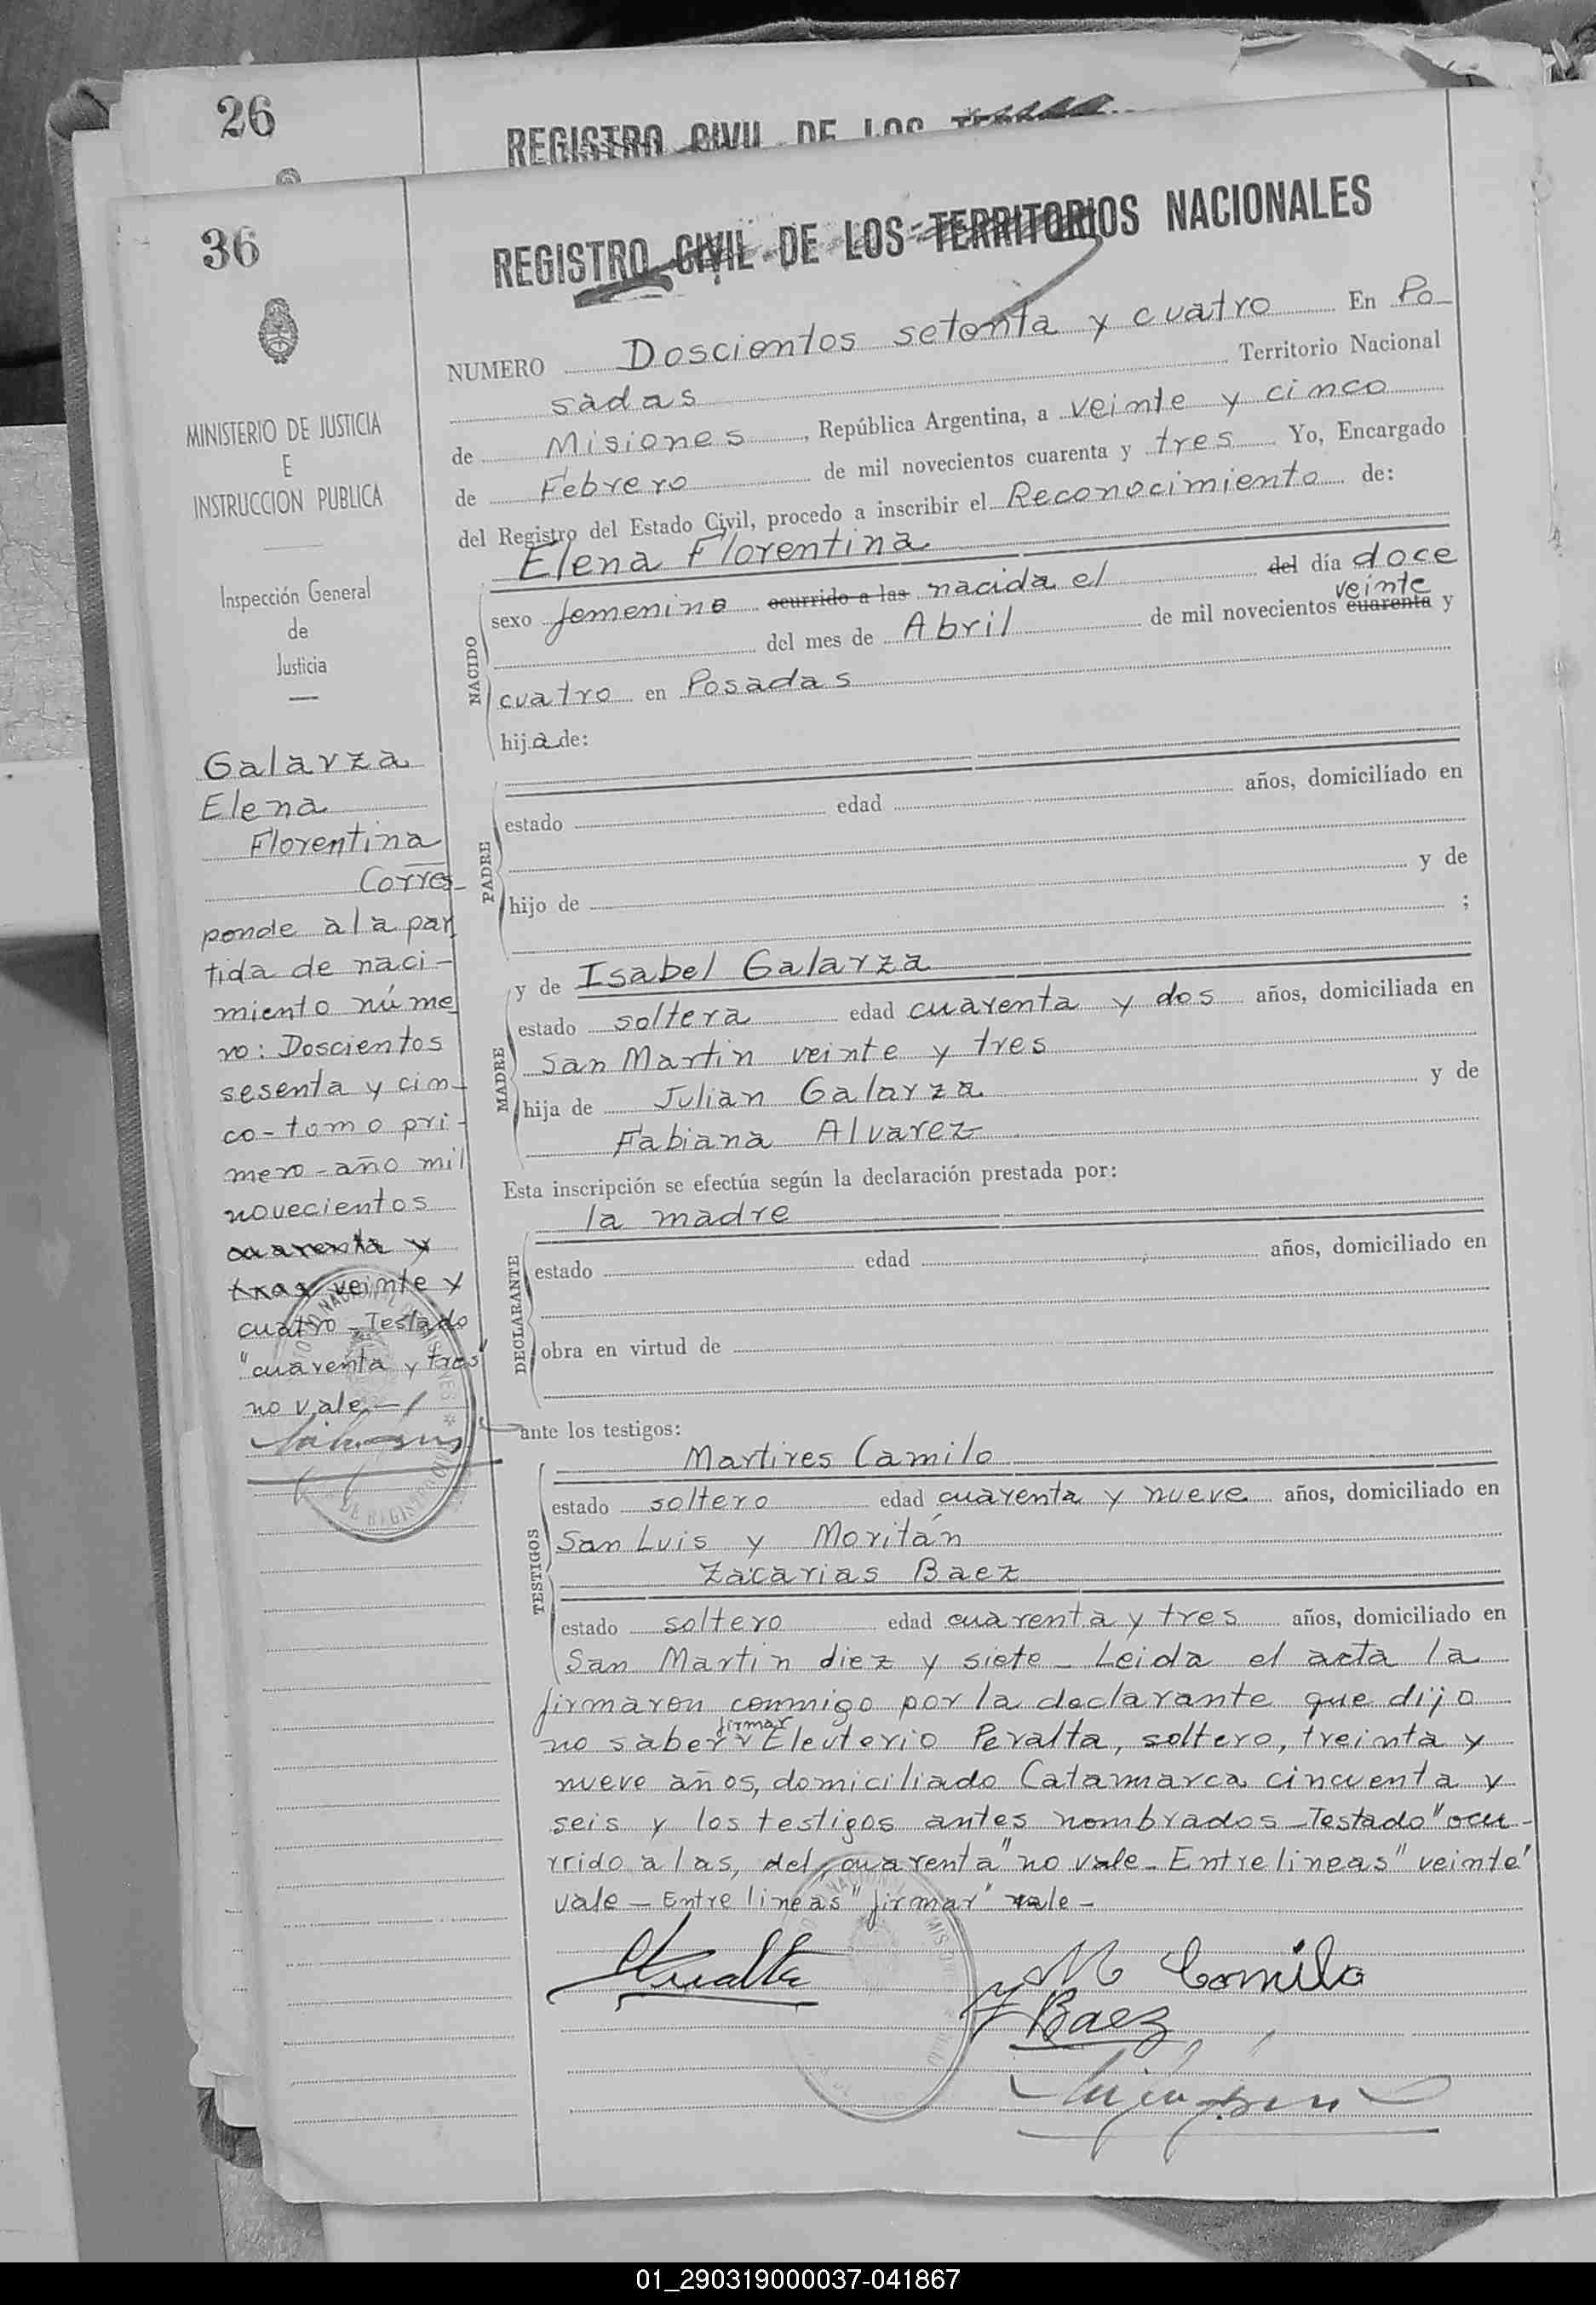 26
REGISTRO CIVIL DE LOS
36
REGISTRO CIVIL DE LOS TERRITORIOS NACIONALES
MINISTERIO DE JUSTICIA
E
INSTRUCCION PUBLICA
Inspección General
de
Justicia
Galarza
Elena
Florentina
Corres-
ponde a la par
tida de naci-
miento núme
ro: Doscientos
sesenta y cin-
co-tomo pri-
mero-año mil
novecientos
cuarenta y
tres veinte y
cuatro-Testado
"cuarenta y tres"
no vale-
NUMERO Doscientos setenta y cuatro En Po-
sadas Territorio Nacional
de Misiones, República Argentina, a veinte y cinco
de Febrero de mil novecientos cuarenta y tres Yo, Encargado
del Registro del Estado Civil, procedo a inscribir el Reconocimiento de:
Elena Florentina
NACIDO
sexo femenino ocurrido a las nacida el del día doce
veinte
del mes de Abril de mil novecientos cuarenta y
cuatro en Posadas
hija de:
PADRE
estado edad años, domiciliado en
hijo de y de
;
MADRE
y de Isabel Galarza
estado soltera edad cuarenta y dos años, domiciliada en
San Martin veinte y tres
hija de Julian Galarza y de
Fabiana Alvarez
Esta inscripción se efectúa según la declaración prestada por:
la madre
DECLARANTE
estado edad años, domiciliado en
obra en virtud de
ante los testigos:
TESTIGOS
Martires Camilo
estado soltero edad cuarenta y nueve años, domiciliado en
San Luis y Moritán
Zacarias Baez
estado soltero edad cuarenta y tres años, domiciliado en
San Martin diez y siete - Leida el acta la
firmaron conmigo por la declarante que dijo
firmar
no saber Eleuterio Peralta, soltero, treinta y
nueve años, domiciliado Catamarca cincuenta y
seis y los testigos antes nombrados-Testado "ocu-
rrido a las, del, cuarenta" no vale-Entre lineas "veinte"
vale - Entre lineas "firmar" vale-
M Camilo
Z Baez
01_290319000037-041867